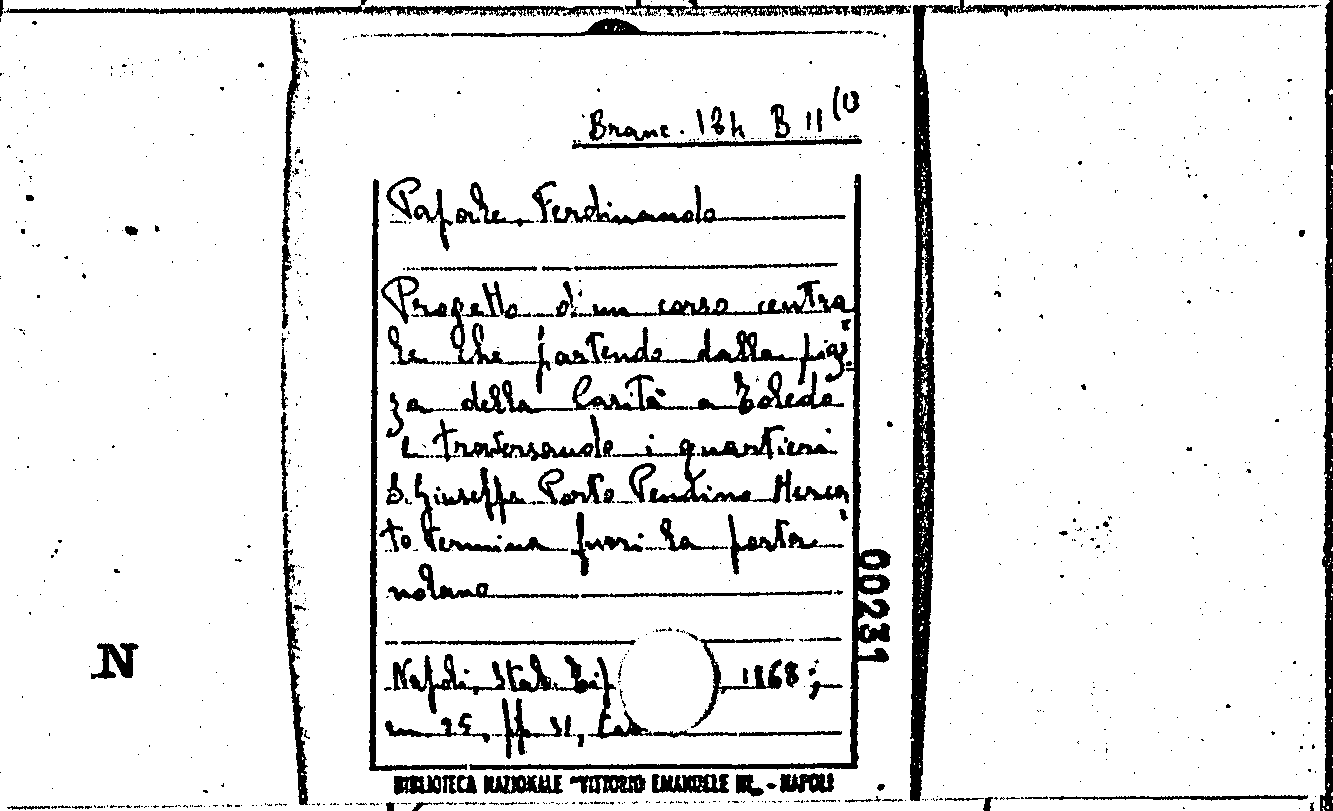 Branc. 134 B 11 (13
Papale, Ferdinando
Progetto di un corso centra
le che partendo dalla piaz=
za della Carità a Toledo
e traversando i quartieri
S. Giuseppe Porto Pendino Merca
to termina fuori la porta
nolana
00231
N
Napoli, Stab. Tip , 1868;
in 25, pp 31,
BIBLIOTECA NAZIONALE "VITTORIO EMANUELE III" - NAPOLI